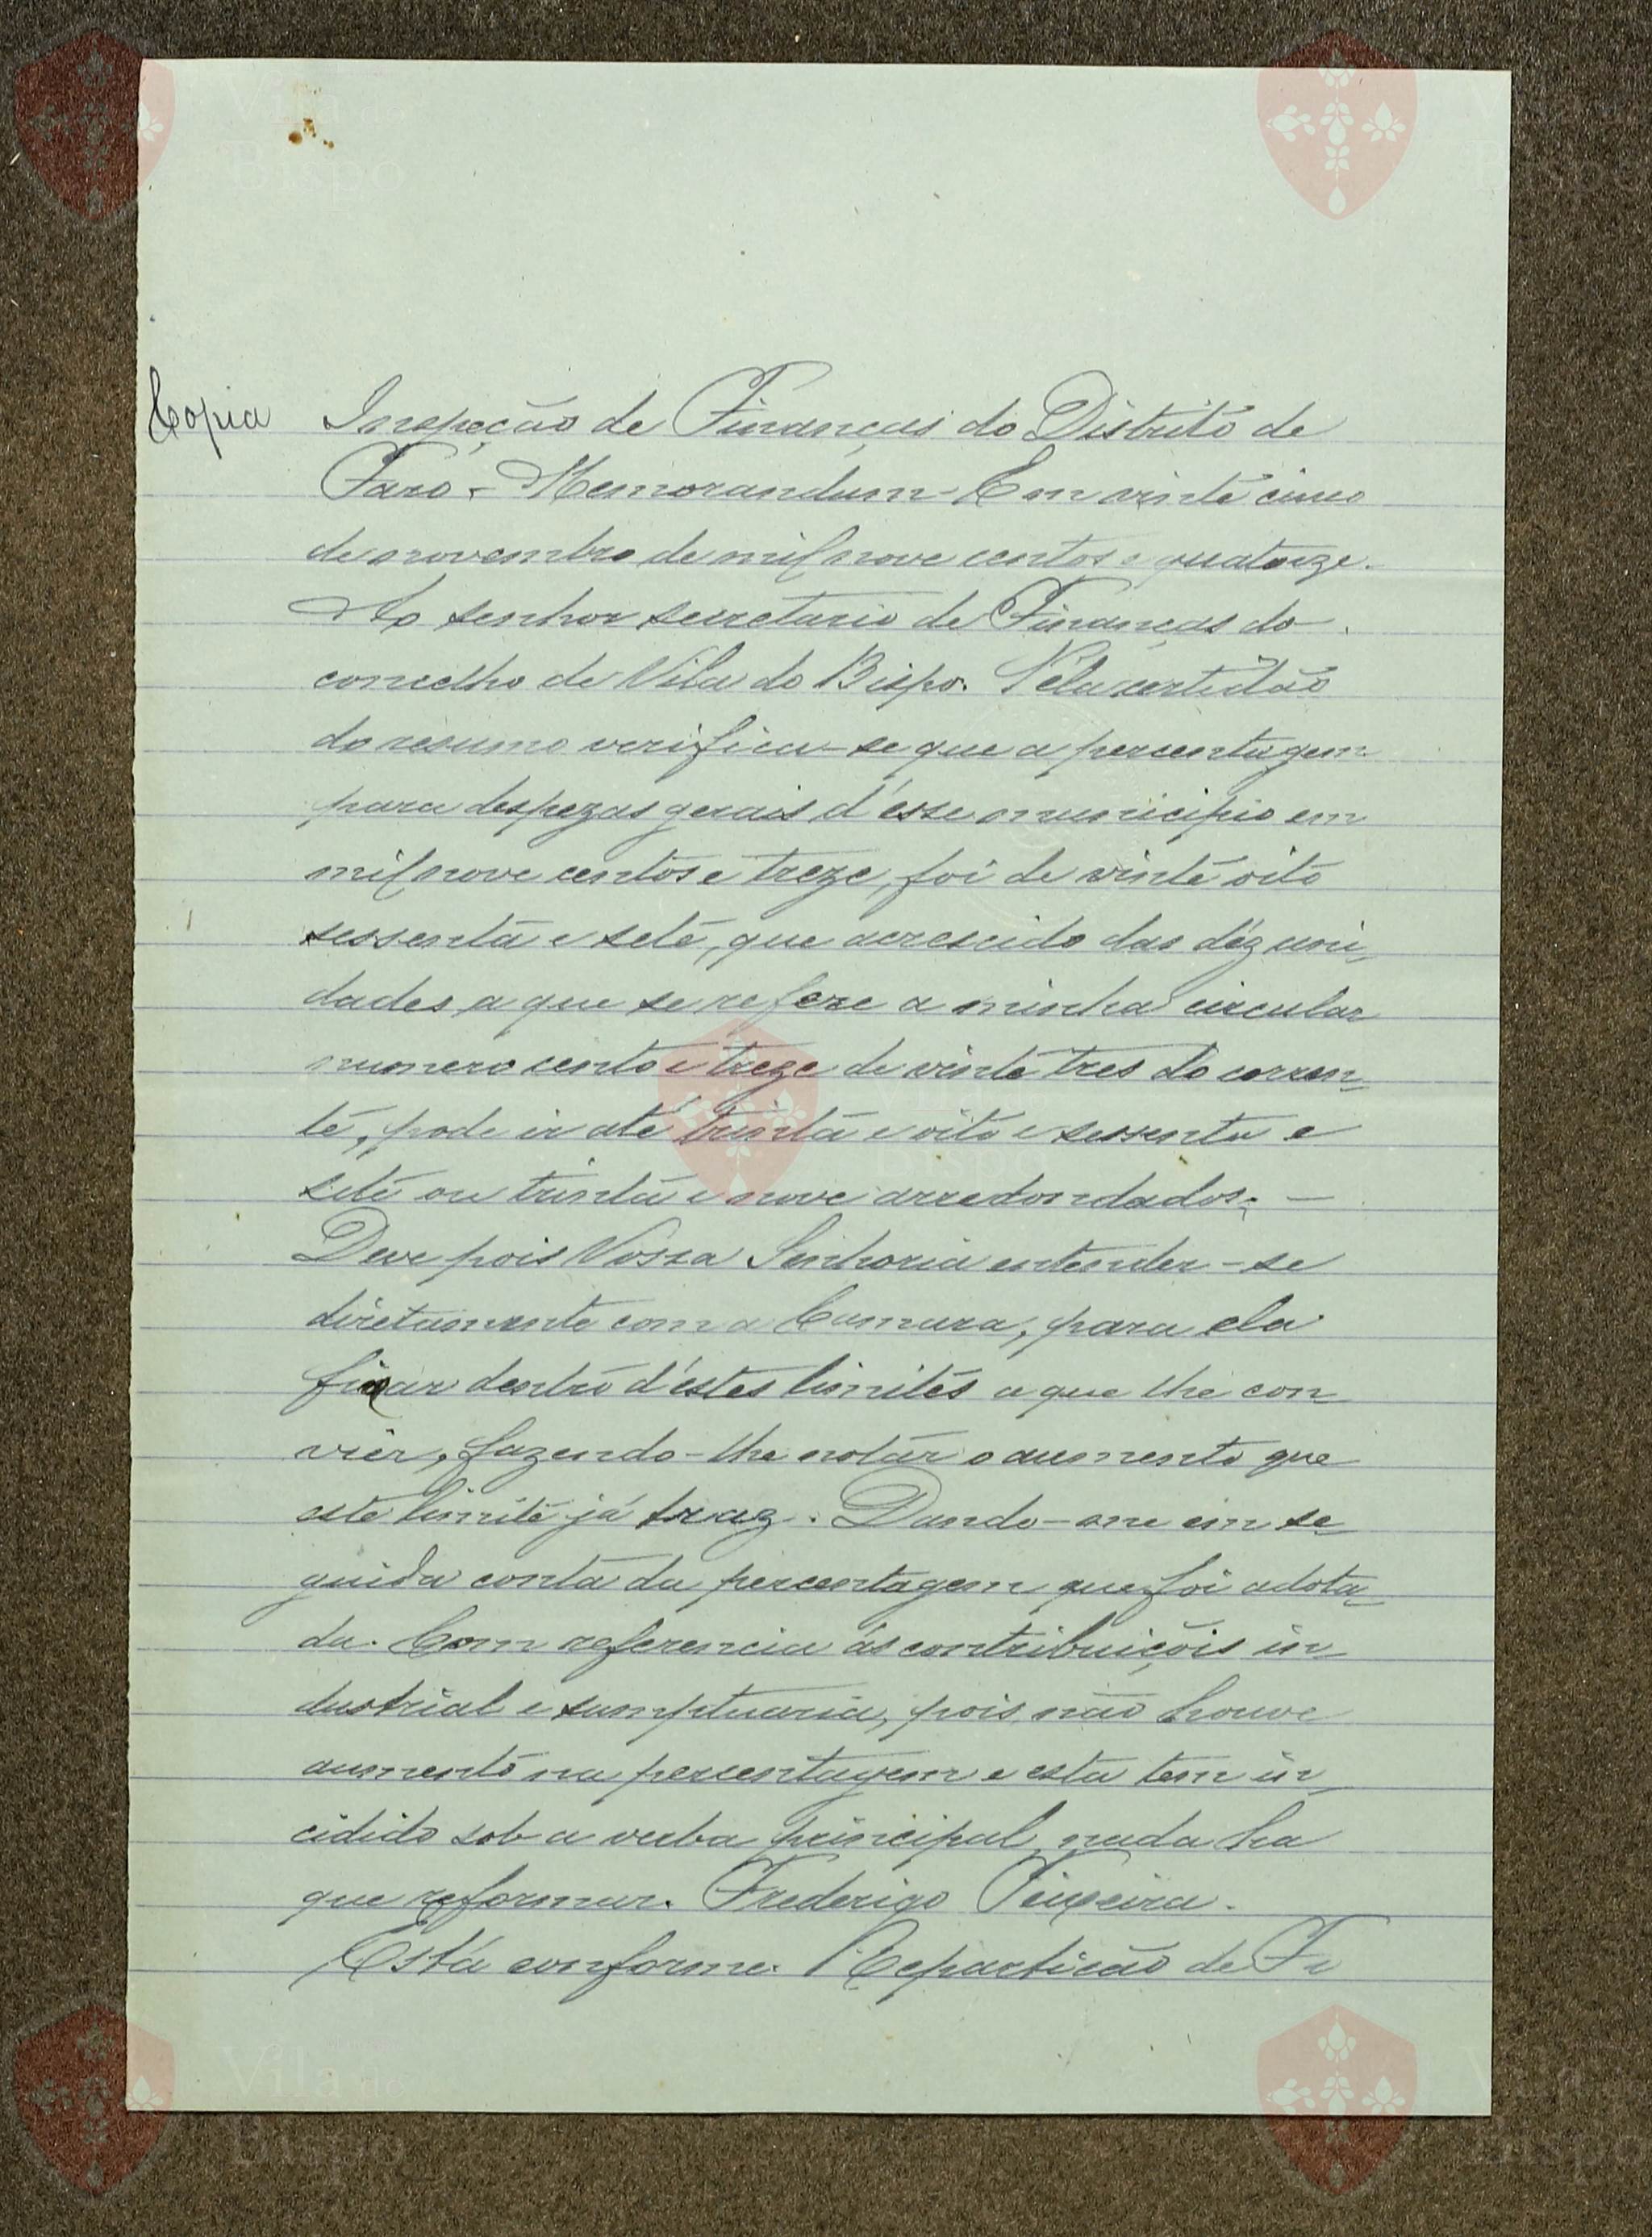 Copia
Inspeção de Finanças do Distrito de
Faro - Memorandum - Em vinte cinco
de novembro de mil nove centos e quatorze.
Ao senhor secretario de Finanças do
concelho de Vila do Bispo. Pela certidão
do resumo verifica-se que a percentagem
para despezas gerais d'esse municipio em
mil nove centos e treze, foi de vinte oito
sessenta e sete, que acrescido das déz uni-
dades a que se refere a minha circular
numero cento e treze de vinte tres do corren-
te, pode ir até trinta e oito e sessenta e
sete ou trinta e nove arredondados. —
Deve pois Vossa Senhoria entender-se
diretamente com a Camara, para ela
fixar dentro d'estes limites a que lhe con-
vier, fazendo-lhe notar o aumento que
este limite já traz. Dando-me em se-
guida conta da percentagem que foi adota-
da. Com referencia ás contribuiçõis in-
dustrial e sumptuaria, pois não houve
aumento na percentagem e esta tem in-
cidido sob a verba principal, nada ha
que reformar. Frederigo Teixeira.
Está conforme. Repartição de Fi
Vila do
Bispo